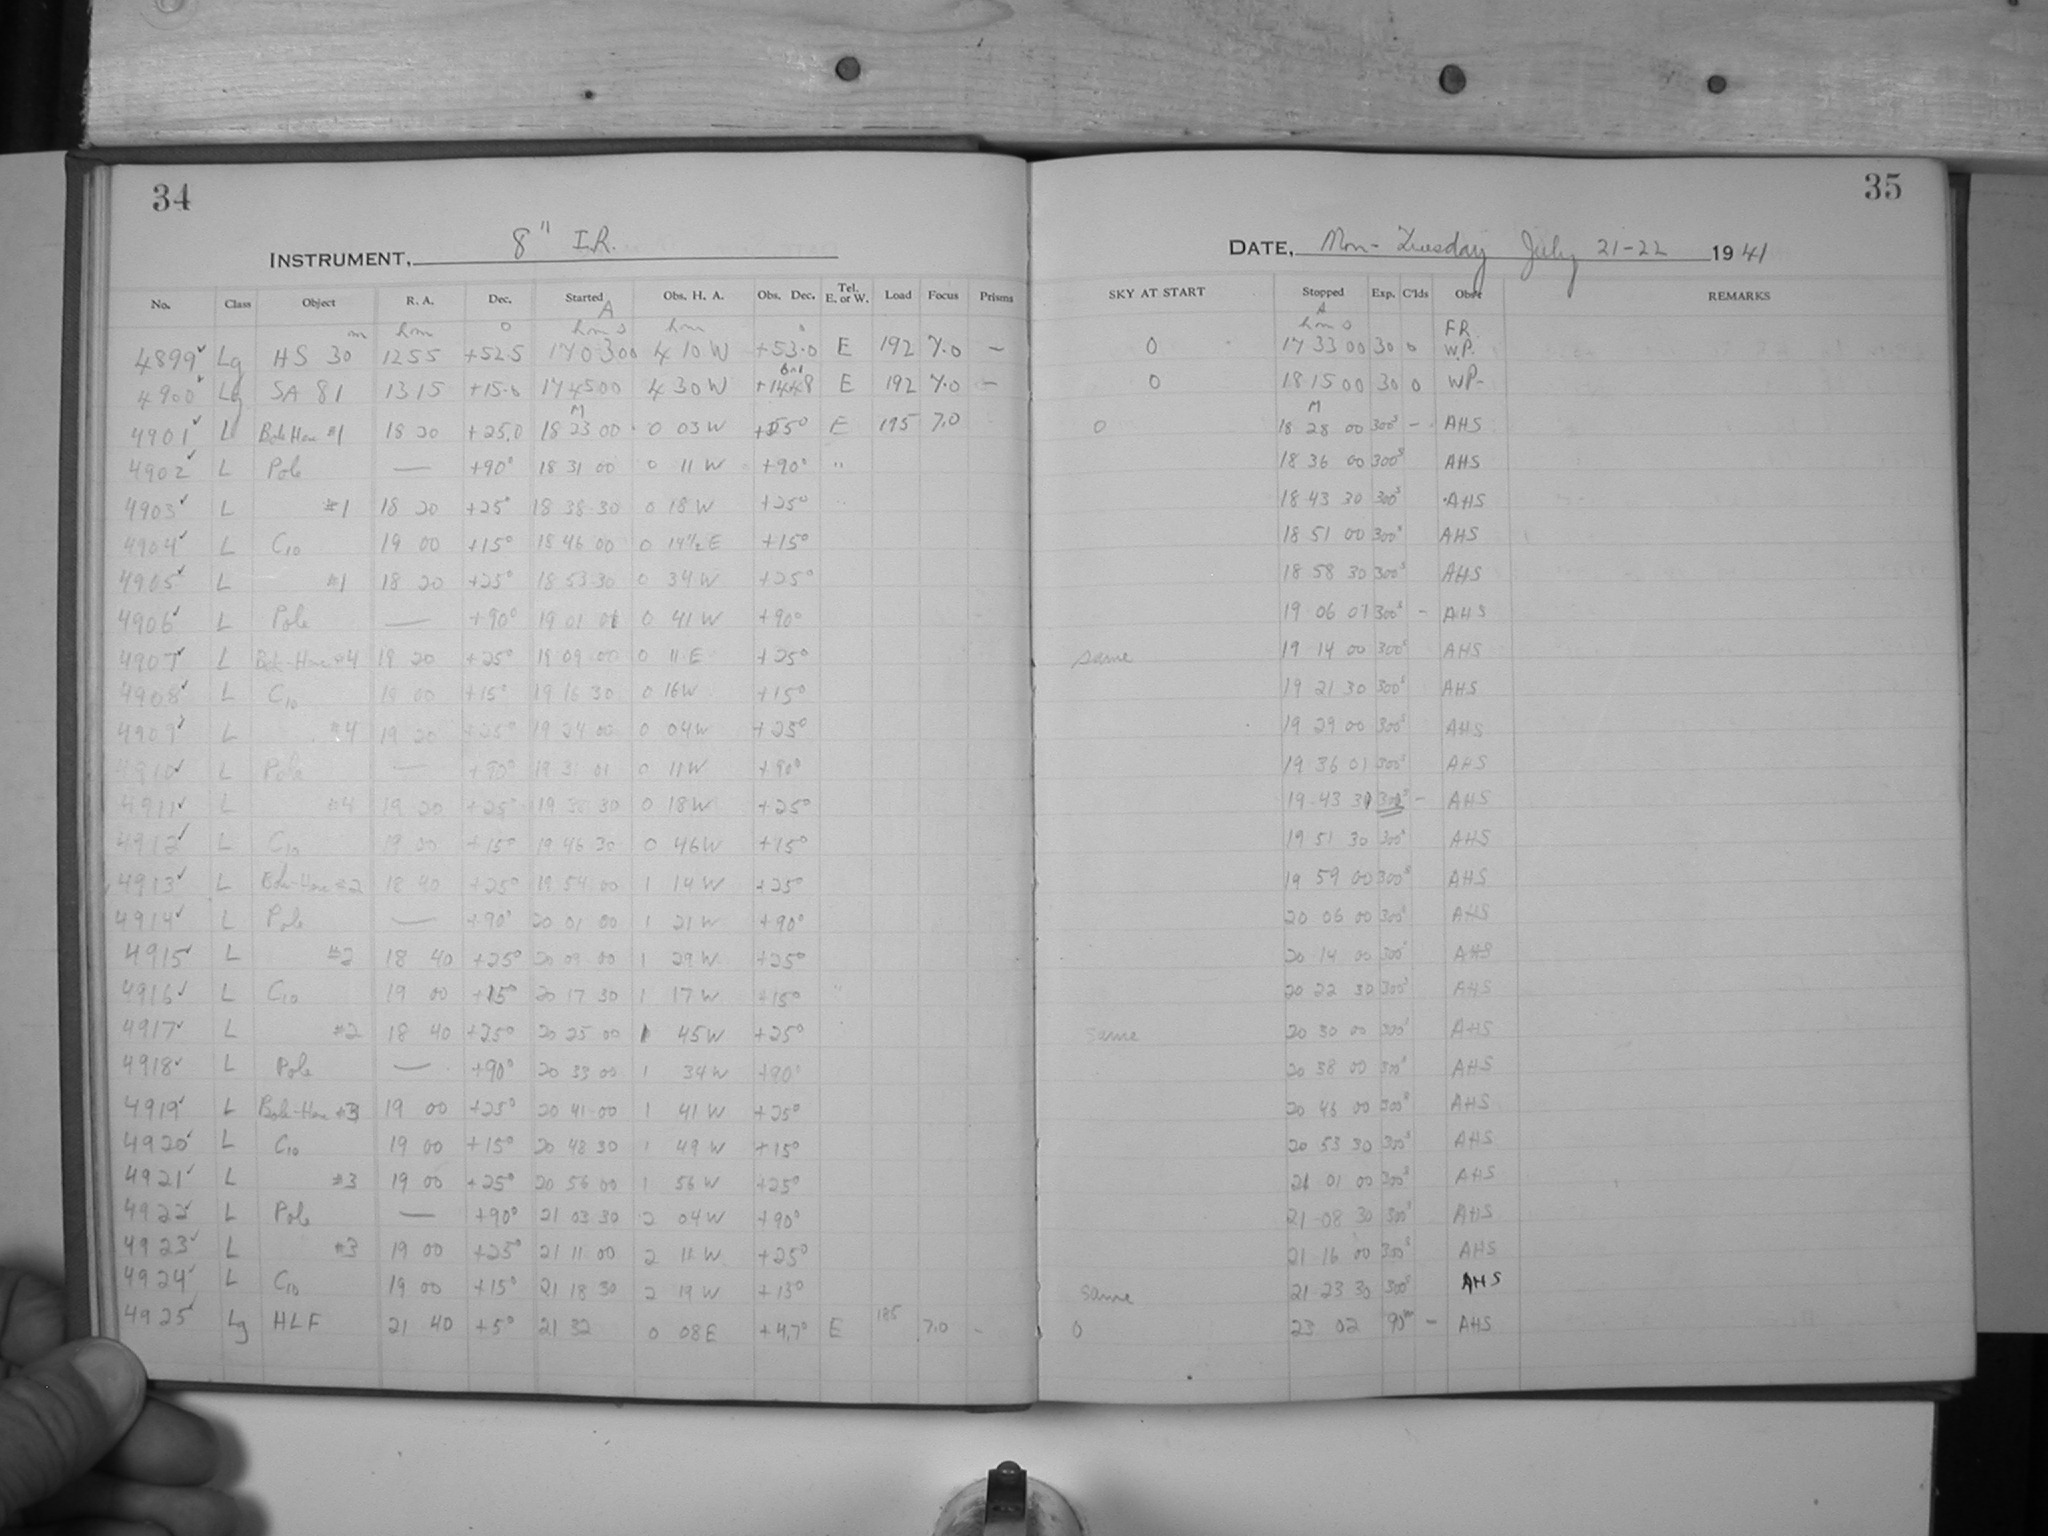 34
INSTRUMENT, 8" I.R.
No. Class Object R. A. Dec. Started Obs. H. A. Obs. Dec. Tel. E. or W. Load Focus Prisms
m h m o A h m s h m o
4899✓ Lg HS 30 12 55 +52.5 17 03 00 4 10 W +53.0 E 192 7.0 -
4900✓ Lg SA 81 13 15 +15.0 17 45 00 4 30 W +14 48 E 192 7.0 -
M
4901✓ L #1 18 20 +25.0 18 23 00 0 03 W +25° E 195 7.0
4902✓ L Pole — +90° 18 31 00 0 11 W +90° "
4903✓ L #1 18 20 +25° 18 38 30 0 18 W +25° "
4904✓ L C10 19 00 +15° 18 46 00 0 14½ E +15°
4905✓ L #1 18 20 +25° 18 53 30 0 34 W +25°
4906✓ L Pole — +90° 19 01 01 0 41 W +90°
4907✓ L #4 19 20 +25° 19 09 00 0 11 E +25°
4908✓ L C10 19 00 +15° 19 16 30 0 16 W +15°
4909✓ L #4 19 20 +25° 19 24 00 0 04 W +25°
4910✓ L Pole — +90° 19 31 01 0 11 W +90°
4911✓ L #4 19 20 +25° 19 38 30 0 18 W +25°
4912✓ L C10 19 00 +15° 19 46 30 0 46 W +15°
4913✓ L #2 18 40 +25° 19 54 00 1 14 W +25°
4914✓ L Pole — +90° 20 01 00 1 21 W +90°
4915✓ L #2 18 40 +25° 20 09 00 1 29 W +25°
4916✓ L C10 19 00 +15° 20 17 30 1 17 W +15° "
4917✓ L #2 18 40 +25° 20 25 00 1 45 W +25°
4918✓ L Pole — +90° 20 33 00 1 34 W +90°
4919✓ L #3 19 00 +25° 20 41 00 1 41 W +25°
4920✓ L C10 19 00 +15° 20 48 30 1 49 W +15°
4921✓ L #3 19 00 +25° 20 56 00 1 56 W +25°
4922✓ L Pole — +90° 21 03 30 2 04 W +90°
4923✓ L #3 19 00 +25° 21 11 00 2 11 W +25°
4924✓ L C10 19 00 +15° 21 18 30 2 19 W +15°
4925✓ Lg HLF 21 40 +5° 21 32 0 08 E +4.7° E 185 7.0 -
35
DATE, Mon-Tuesday July 21-22 1941
SKY AT START Stopped Exp. C'lds Obs'r REMARKS
A h m s F.R.
0 17 33 00 30 0 W.P.
0 18 15 00 30 0 WP-
M
0 18 28 00 300s - AHS
18 36 00 300s AHS
18 43 30 300s AHS
18 51 00 300s AHS
18 58 30 300s AHS
19 06 01 300s - AHS
same 19 14 00 300s AHS
19 21 30 300s AHS
19 29 00 300s AHS
19 36 01 300s AHS
19 43 31 301s - AHS
19 51 30 300s AHS
19 59 00 300s AHS
20 06 00 300s AHS
20 14 00 300s AHS
20 22 30 300s AHS
same 20 30 00 300s AHS
20 38 00 300s AHS
20 46 00 300s AHS
20 53 30 300s AHS
21 01 00 300s AHS
21 08 30 300s AHS
21 16 00 300s AHS
same 21 23 30 300s AHS
0 23 02 90m - AHS